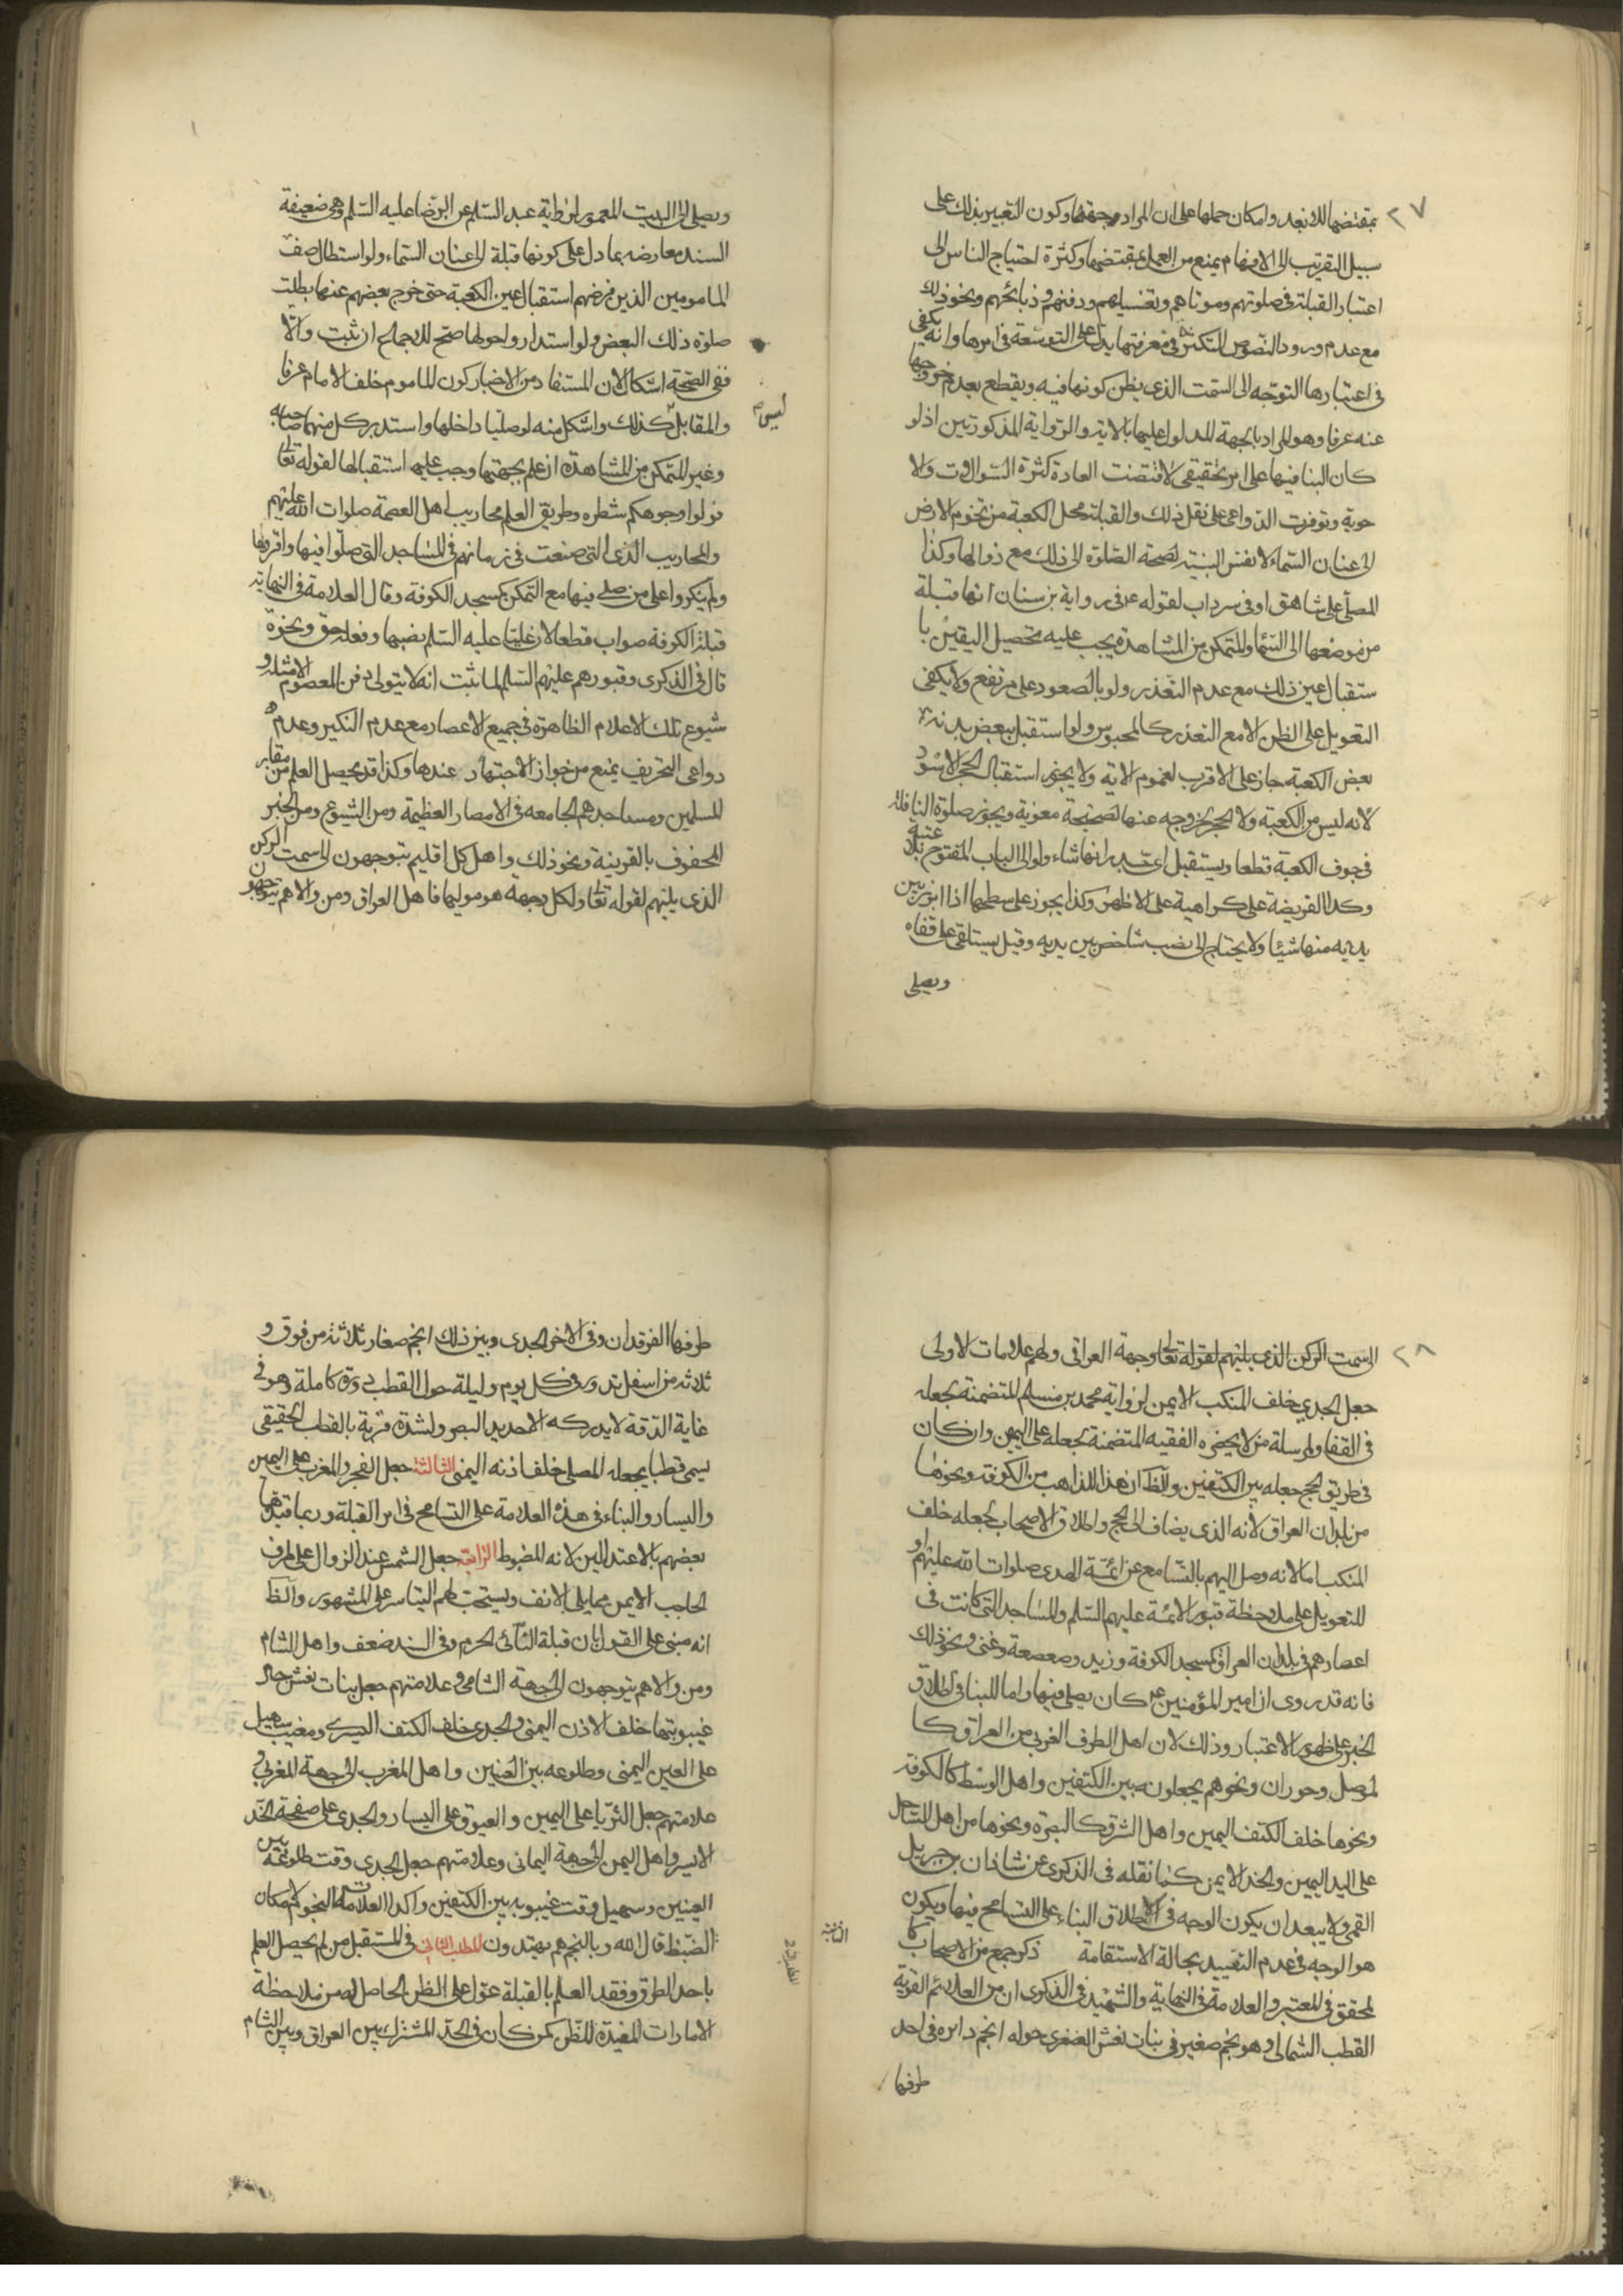 ٢٧
بمقتضها للابعد وامكان حملها على ان المراد جهتها وكون التعبير بذلك على
سبيل التقريب الى الافهام يمنع من العمل بمقتضها وكثرة احتياج الناس الى
اعتبار القبلة فى صلوتهم وموتاهم وتغسيلهم ودفنهم وذبائحهم ونحو ذلك
مع عدم ورود النصوص المتكثرة فى معرفتها يدل على التوسعة فى امرها وانه يكفى
فى اعتبارها التوجه الى السمت الذى يظن كونها فيه ويقطع بعدم خروجها
عنه عرفا وهو المراد بالجهة المدلول عليها بالاية والرواية المذكورتين اذ لو
كان البنا فيها على امر تحقيقى لاقتضت العادة كثرة السوال وت ولا
حوبة وتوفرت الدواعى على نقل ذلك والقبلة محل الكعبة من تخوم الارض
الى عنان السماء لا نفس البنية لصحة الصلوة الى ذلك مع زوالها وكذا
المصلى على شاهق او فى سرداب لقوله ع فى رواية بن سنان انها قبلة
من موضعها الى السما والمتمكن من المشاهدة يجب عليه تحصيل اليقين با
ستقبال عين ذلك مع عدم التعذر ولو بالصعود على مرتفع ولا يكفى
التعويل على الظن الا مع التعذر كالمحبوس ولو استقبل ببعض بدنه
بعض الكعبة جاز على الاقرب لعموم الاية ولا يجوز استقبال الحجر الاسود
لانه ليس من الكعبة ولا الحجر لخروجه عنها لصحيحة معوية ويجوز صلوة النافلة
فى جوف الكعبة قطعا ويستقبل اى جدرانها شاء ولو الى الباب المفتوح بلا عتبة
وكذا الفريضة على كراهية على الاظهر وكذا يجوز على سطحها اذا ابرز بين
يديه منها شيئا ولا يحتاج الى نصب شاخص بين يديه وقيل يستلقى على قفاه
ويصلى
ويصلى الى البيت المعمور لرواية عبد السلام عن الرضا عليه السلم وهى ضعيفة
السند معارضة بما دل على كونها قبلة الى عنان السماء ولو استطال صف
المامومين الذين فرضهم استقبال عين الكعبة حتى خرج بعضهم عنها بطلت
صلوة ذلك البعض ولو استداروا حولها صح للاجماع ان ثبت والا
ففى الصحة اشكال لان المستفاد من الاخبار كون الماموم خلف الامام عرفا
والمقابل كذلك واشكل منه لو صليا داخلها واستدبر كل منهما صاحبه
ليس
وغير المتمكن من المشاهدة ان علم بجهتها وجب عليه استقبالها لقوله تعالى
فولوا وجوهكم شطره وطريق العلم محاريب اهل العصمة صلوات الله عليهم
والمحاريب الذى التى صنعت فى زمانهم فى المساجد التى صلوا فيها واقروها
ولم ينكروا على من صلى فيها مع التمكن كمسجد الكوفة وقال العلامة فى النهاية
قبلة الكوفة صواب قطعا لان عليا عليه السلم نصبها وفعله حق ونحوه
قال فى الذكرى وقبورهم عليهم السلم لما ثبت انه لا يتولى دفن المعصوم الا مثله و
شيوع تلك الاعلام الظاهرة فى جميع الاعصار مع عدم النكير وعدم
دواعى التحريف يمنع من جواز الاجتهاد عندها وكذا قد يحصل العلم من مقابر
المسلمين ومساجدهم الجامعة فى الامصار العظيمة ومن الشيوع ومن الخبر
المحفوف بالقرينة ونحو ذلك واهل كل اقليم يتوجهون الى سمت الركن
الذى يليهم لقوله تعالى ولكل وجهة هو موليها فاهل العراق ومن والاهم يتوجهون
٢٨
الى سمت الركن الذى يليهم لقوله تعالى وجهة العراقى ولهم علامات الاولى
جعل الجدى خلف المنكب الايمن لرواية محمد بن مسلم المتضمنة بجعله
فى القفا ولمرسلة من لا يحضره الفقيه المتضمنة لجعله على اليمين وان كان
فى طريق الحج جعله بين الكتفين والظ ان هذا للذاهب من الكوفة ونحوها
من بلدان العراق لانه الذى يضاف الى الحج واطلاق الاصحاب لجعله خلف
المنكب اما لانه وصل اليهم بالتسامع عن ائمة الهدى صلوات الله عليهم او
للتعويل على ملاحظة قبور الائمة عليهم السلم والمساجد التى كانت فى
اعصارهم فى بلدان العراق كمسجد الكوفة وزيد وصعصعة وغنى ونحو ذلك
فانه قد روى ان امير المؤمنين ع كان يصلى فيها واما للبنا فى اطلاق
الخبر على ظهور الاعتبار وذلك لان اهل الطرف الغربى من العراق كا
لموصل وحوران ونحوهم يجعلونه بين الكتفين واهل الوسط كالكوفة
ونحوها خلف الكتف اليمين واهل الشرق كالبصرة ونحوها من اهل الساحل
على اليد اليمين والخد الايمن كما نقله فى الذكرى عن شاذان بن جبريل
القمى ولا يبعد ان يكون الوجه فى الاطلاق البناء على التسامح فيها ويكون
هو الوجه فى عدم التقييد بحالة الاستقامة ذكر جمع من الاصحاب كا
الثانية
لمحقق فى المعتبر والعلامة فى النهاية والشهيد فى الذكرى ان من العلائم القوية
القطب الشمالى وهو نجم صغير فى بنات نعش الصغرى حوله انجم دائره فى احد
طرفها
طرفها الفرقدان وفى الاخر الجدى وبين ذلك انجم صغار ثلاثة من فوق و
ثلاثة من اسفل تدور فى كل يوم وليلة حول القطب دورة كاملة وهو فى
غاية الدقة لا يدركه الا حديد البصر ولشدة قربة بالقطب الحقيقى
يسمى قطبا يجعله المصلى خلف اذنه اليمنى الثالثة جعل الفجر والمغرب على اليمين
واليسار والبناء فى هذه العلامة على التسامح فى امر القبلة وربما قيدها
بعضهم بالاعتدالين لانه المضبوط الرابعة جعل الشمس عند الزوال على طرف
الحاجب الايمن مما يلى الانف ويستحب لهم التياسر على المشهور والظ
انه مبنى على القول بان قبلة النائى الحرم وفى السند ضعف واهل الشام
ومن والاهم يتوجهون الى جهة الشامى وعلامتهم جعل بنات نعش حال
غيبوبتها خلف الاذن اليمنى والجدى خلف الكتف اليسرى ومغيب سهيل
على العين اليمنى وطلوعه بين العينين واهل المغرب الى جهة المغربى و
علامتهم جعل الثريا على اليمين والعيوق على اليسار والجدى على صفحة الخد
الايسر واهل اليمن الى جهة اليمانى وعلامتهم جعل الجدى وقت طلوعه بين
العينين وسهيل وقت غيبوبه بين الكتفين واكد العلامات النجوم لامكان
الضبط قال الله وبالنجم هم يهتدون المطلب الثانى فى المستقبل من لم يحصل العلم
باحد الطرق وفقد العلم بالقبلة عول على الظن الحاصل له من ملاحظة
الامارات المفيدة للظن كمن كان فى الحد المشترك بين العراق وبين الشام